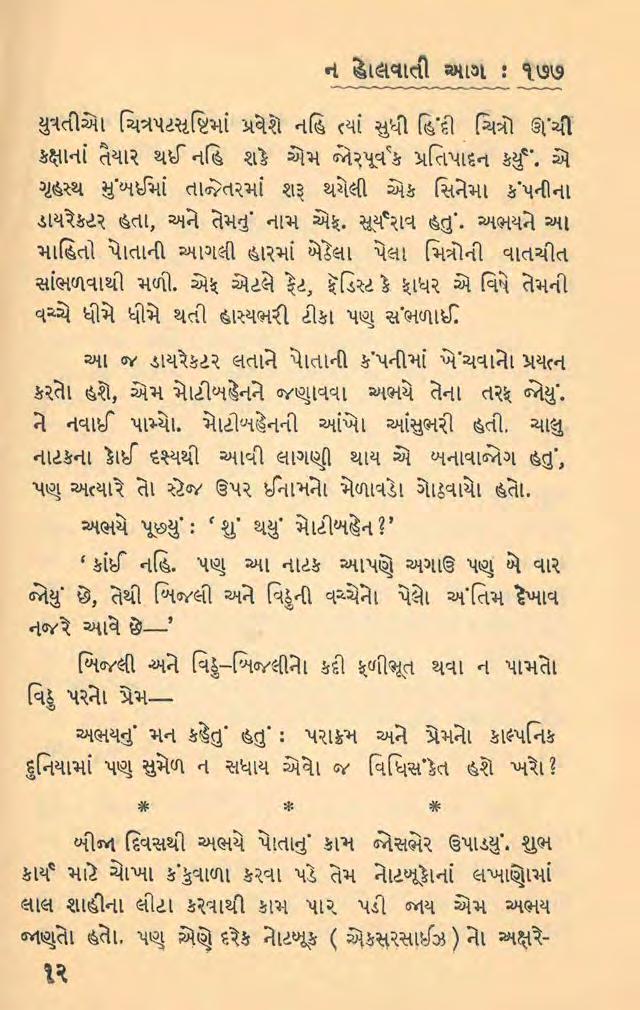 ન હોલવાતી આગ : ૧૭૭
યુવતીઓ ચિત્રપટસૃષ્ટિમાં પ્રવેશે નહિ ત્યાં સુધી હિંદી ચિત્રો ઊંચી
કક્ષાનાં તૈયાર થઈ નહિ શકે એમ જોરપૂર્વક પ્રતિપાદન કર્યું. એ
ગૃહસ્થ મુંબઈમાં તાજેતરમાં શરૂ થયેલી એક સિનેમા કંપનીના
ડાયરેક્ટર હતા, અને તેમનું નામ એફ. સૂર્યરાવ હતું. અભયને આ
માહિતો પોતાની આગલી હારમાં બેઠેલા પેલા મિત્રોની વાતચીત
સાંભળવાથી મળી. એફ એટલે ફેટ, ફૅડિસ્ટ કે ફાધર એ વિષે તેમની
વચ્ચે ધીમે ધીમે થતી હાસ્યભરી ટીકા પણ સંભળાઈ.
આ જ ડાયરેક્ટર લતાને પોતાની કંપનીમાં ખેંચવાનો પ્રયત્ન
કરતો હશે, એમ મોટીબહેનને જણાવવા અભયે તેના તરફ જોયું.
ને નવાઈ પામ્યો. મોટીબહેનની આંખો આંસુભરી હતી. ચાલુ
નાટકના કોઈ દૃશ્યથી આવી લાગણી થાય એ બનાવાજોગ હતું,
પણ અત્યારે તો સ્ટેજ ઉપર ઈનામનો મેળાવડો ગોઠવાયો હતો.
અભયે પૂછ્યું : ‘ શું થયું મોટીબહેન ?’
‘ કાંઈ નહિ. પણ આ નાટક આપણે અગાઉ પણ બે વાર
જોયું છે, તેથી બિજલી અને વિડ્ડની વચ્ચેનો પેલો અંતિમ દેખાવ
નજરે આવે છે—’
બિજલી અને વિડ્ડ–બિજલીનો કદી ફળીભૂત થવા ન પામતો
વિડ્ડ પરનો પ્રેમ—
અભયનું મન કહેતું હતું : પરાક્રમ અને પ્રેમનો કાલ્પનિક
દુનિયામાં પણ સુમેળ ન સધાય એવો જ વિધિસંકેત હશે ખરો ?
* * *
બીજા દિવસથી અભયે પોતાનું કામ જોસભેર ઉપાડયું. શુભ
કાર્ય માટે ચોખા કંકુવાળા કરવા પડે તેમ નોટબૂકોનાં લખાણોમાં
લાલ શાહીના લીટા કરવાથી કામ પાર પડી જાય એમ અભય
જાણતો હતો. પણ એણે દરેક નોટબૂક ( એકસરસાઈઝ ) નો અક્ષરે-
૧૨